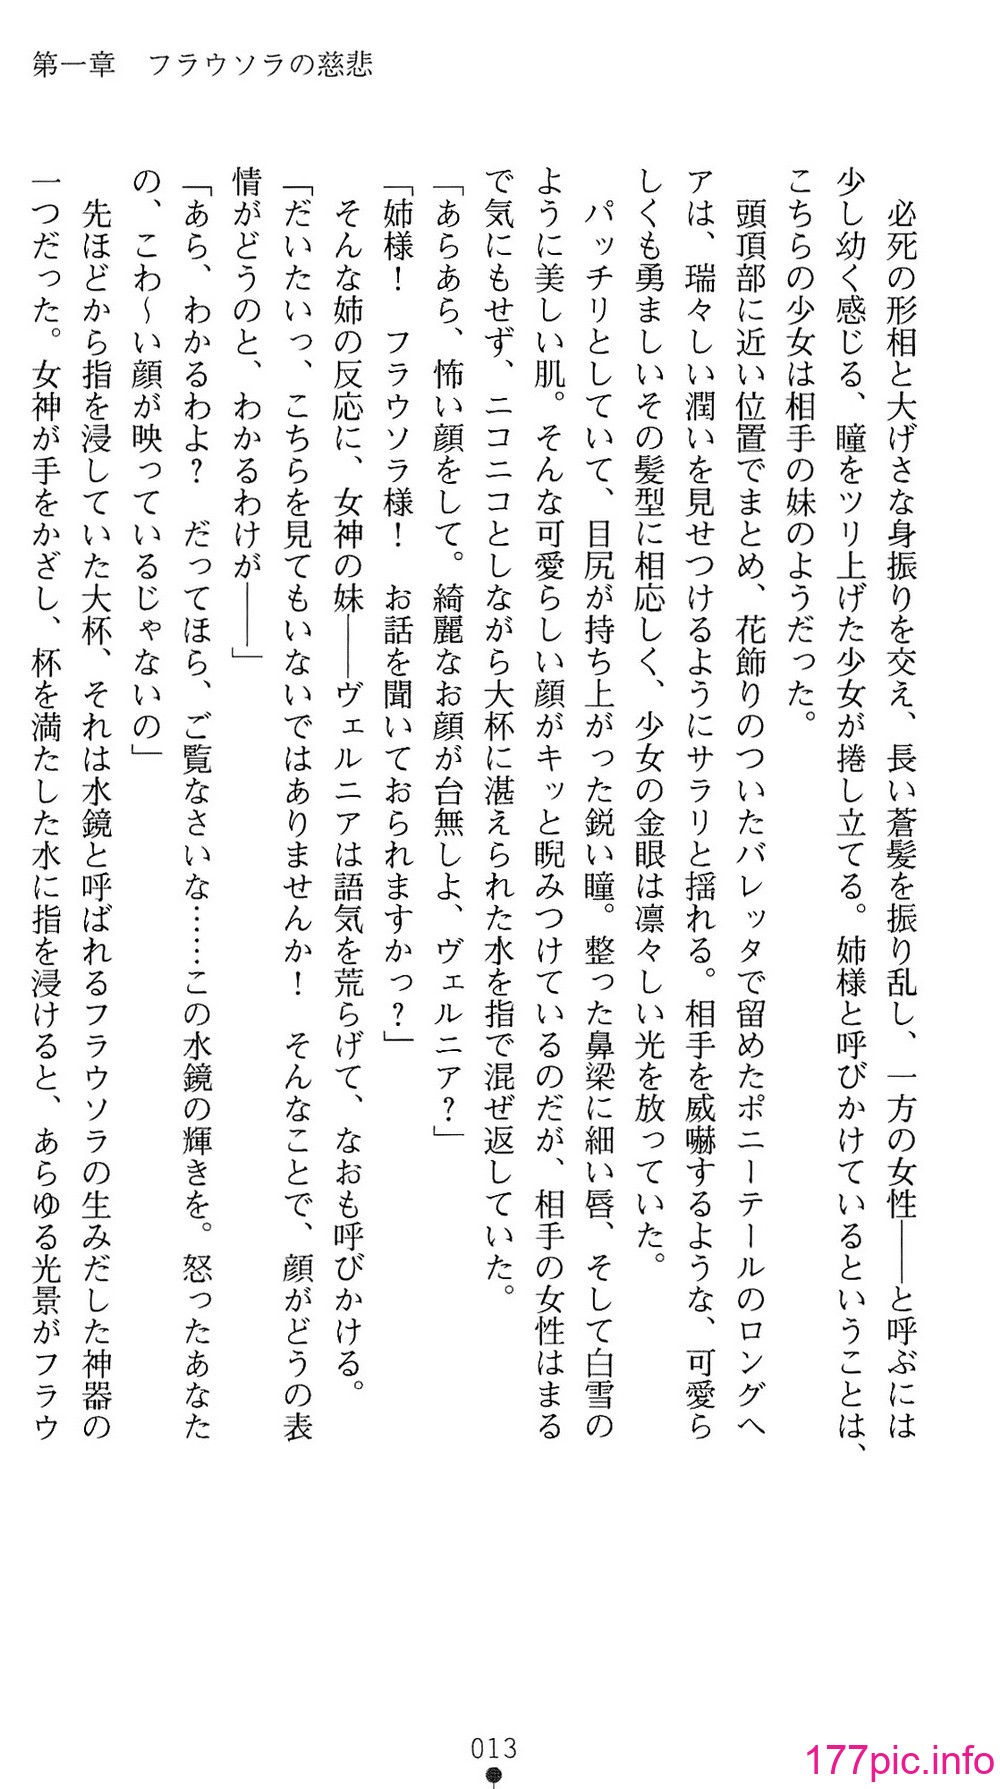 第一章　フラウソラの慈悲
　必死の形相と大げさな身振りを交え、長い蒼髪を振り乱し、一方の女性――と呼ぶには
少し幼く感じる、瞳をツリ上げた少女が捲し立てる。姉様と呼びかけているということは、
こちらの少女は相手の妹のようだった。
　頭頂部に近い位置でまとめ、花飾りのついたバレッタで留めたポニーテールのロングヘ
アは、瑞々しい潤いを見せつけるようにサラリと揺れる。相手を威嚇するような、可愛ら
しくも勇ましいその髪型に相応しく、少女の金眼は凛々しい光を放っていた。
　パッチリとしていて、目尻が持ち上がった鋭い瞳。整った鼻梁に細い唇、そして白雪の
ように美しい肌。そんな可愛らしい顔がキッと睨みつけているのだが、相手の女性はまる
で気にもせず、ニコニコとしながら大杯に湛えられた水を指で混ぜ返していた。
「あらあら、怖い顔をして。綺麗なお顔が台無しよ、ヴェルニア？」
「姉様！　フラウソラ様！　お話を聞いておられますかっ？」
　そんな姉の反応に、女神の妹――ヴェルニアは語気を荒らげて、なおも呼びかける。
「だいたいっ、こちらを見てもいないではありませんか！　そんなことで、顔がどうの表
情がどうのと、わかるわけが――」
「あら、わかるわよ？　だってほら、ご覧なさいな……この水鏡の輝きを。怒ったあなた
の、こわ～い顔が映っているじゃないの」
　先ほどから指を浸していた大杯、それは水鏡と呼ばれるフラウソラの生みだした神器の
一つだった。女神が手をかざし、杯を満たした水に指を浸けると、あらゆる光景がフラウ
013
177pic.info